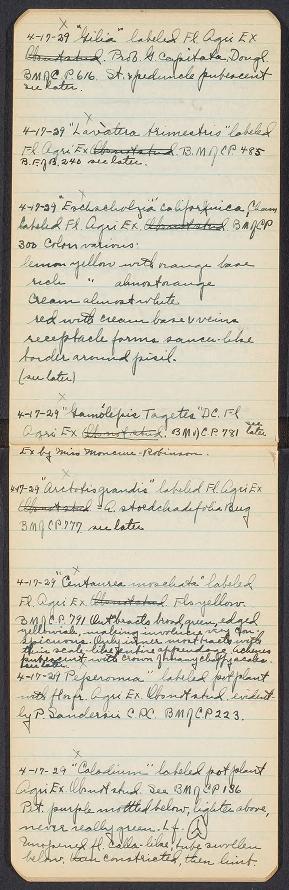 4-17-29 "Gilia" labeled Fl. Agri Ex
Obsn & stud. Prob. G. capitata, Dougl.
BM&C.P. 616. St. & peduncle pubescent
see later.
4-17-29 "Lavatera trimestris" labeled
Fl. Agri Ex Obsn & stud. B.M&C.P. 485
B.F&B, 240 see later.
4-17-29 "Eschscholzia" californica, Cham
labeled Fl. Agri Ex. Obsn & stud. BM&CP
300 Colors various:
lemon yellow with orange base
rich " almost orange
cream almost white
red with cream base & veins
receptacle forms saucer-like
border around pistil.
(see later)
4-17-29 "Gamolepis Tagetes" DC. Fl
Agri Ex Obsn & stud. BM&C.P. 781 see later
Ex by Miss Moncure-Robinson.
4-17-29 "Arctotis grandis" labeled Fl. Agri Ex
Obsn & stud = A. stoechadifolia Berg
BM&CP 777 see later
4-17-29 "Centaurea moschata" labeled
Fl. Agri Ex. Obsn & stud Fls yellow.
BM&C.P. 791 Out bracts broad, green, edged
yellowish, making involucre very con
spicuous. Only inner most bracts with
thin scale-like entire appendage. Achenes
pubescent, with crown of many chaffy scales.
see later
4-17-29 Peperomia" labeled pot plant
with flos fr. Agri Ex. Obsn & stud. evident
ly P. Sandersii C.DC. BM&CP 223.
4-17-29 "Caladium" labeled pot plant
Agri Ex. Obsn & stud see BM&CP 136
Pet. purple mottled below, lighter above,
never really green. Lf.
Unopened fl. calla-like, tube swollen
below, constricted, then limb.